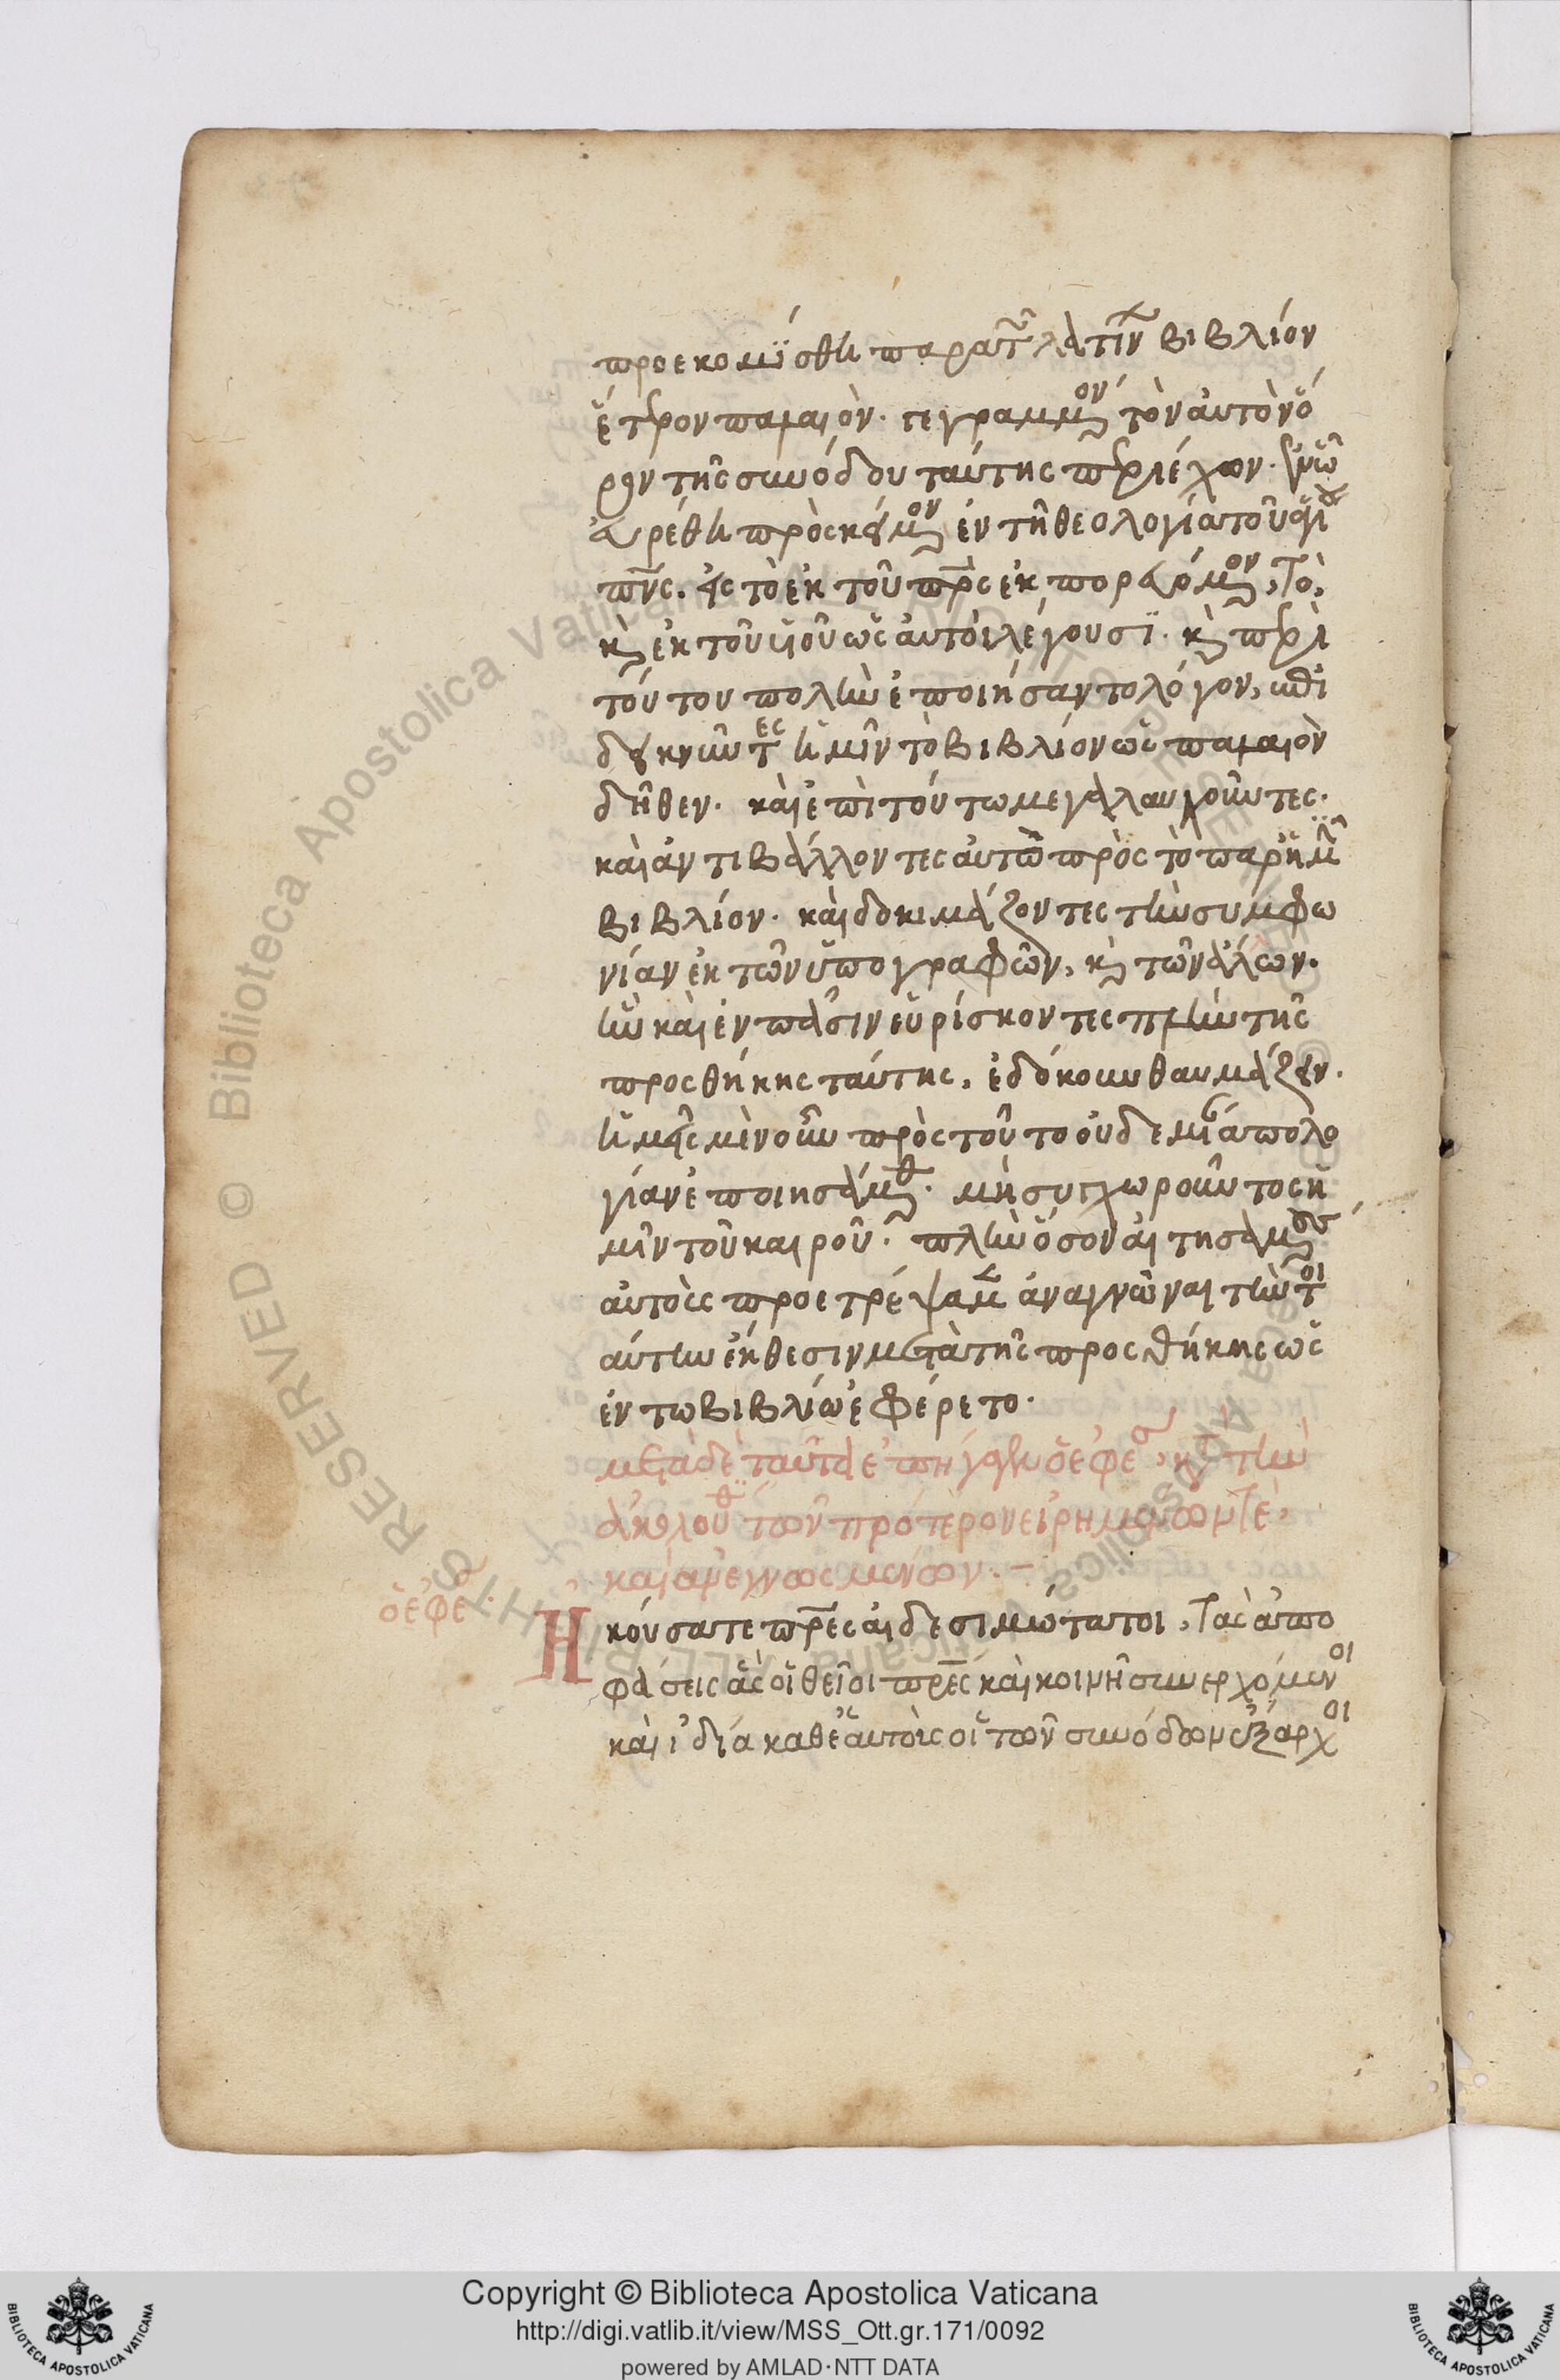 προεκομίσθη παρὰ τῶν λατίνων βιβλίον
ἕτερον παλαιὸν. γεγραμμένον τὸν αὐτὸν ὅ
ρον τῆς συνόδου ταύτης περιέχον. ἐν ὧ
εὑρέθη προσκείμενον ἐν τῆ θεολογία τοῦ ἁγίου
πνς. εἰς τὸ ἐκ τοῦ πρς ἐκπορευόμενον, τὸ,
καὶ ἐκ τοῦ υἱοῦ ὡς αὐτοὶ λέγουσϊ. καὶ περὶ
τούτου πολὺν ἐποιήσαντο λόγον,
δεικνῦντες ἡμῖν τὸ βιβλίον ὡς παλαιὸν
δῆθεν. καὶ ἐπὶ τούτω μεγαλαυχοῦντες.
καὶ ἀντιβάλλοντες αὐτῶ πρὸς τὸ παρ' ἡμῖν
βιβλίον. καὶ δοκιμάζοντες τὴν συμφω
νίαν ἐκ τῶν ὑπογραφῶν, καὶ τῶν ἄλλων.
ἣν καὶ ἐν πᾶσιν εὑρίσκοντες πλὴν τῆς
προσθήκης ταύτης, ἐδόκουν θαυμάζειν.
ἡμεῖς μὲν οὖν πρὸς τοῦτο οὐδεμίαν ἀπολο
γίαν ἐποιησάμεθα. μὴ συγχωροῦντος ἡ
μῖν τοῦ καιροῦ. πλὴν ὅσον αἰτησαμένους
αὐτοὺς προετρέψαμεν ἀναγνῶναι τὴν τοι
αύτην ἔκθεσιν μετὰ τῆς προσθήκης ὡς
ἐν τω βιβλίω ἐφέρετο.
μετὰ δὲ ταῦτα ἐπήγαγεν ὁ ἐφέσου, κατὰ τὴν
ἀκολουθίαν τῶν πρότερον εἰρημένων τὲ,
καὶ ἀνεγνωσμένων. –
ὁ ἐφέσου.
Ἠκούσατε πρες αἰδεσιμώτατοι, τὰς ἀπο
φάσεις ἃς οἱ θεῖοι πρες καὶ κοινῆ συνερχόμενοι
καὶ ἰδία καθ' ἑαυτοὺς οἱ τῶν συνόδων ἔξαρχοι
Copyright © Biblioteca Apostolica Vaticana
http://digi.vatlib.it/view/MSS_Ott.gr.171/0092
powered by AMLAD·NTT DATA